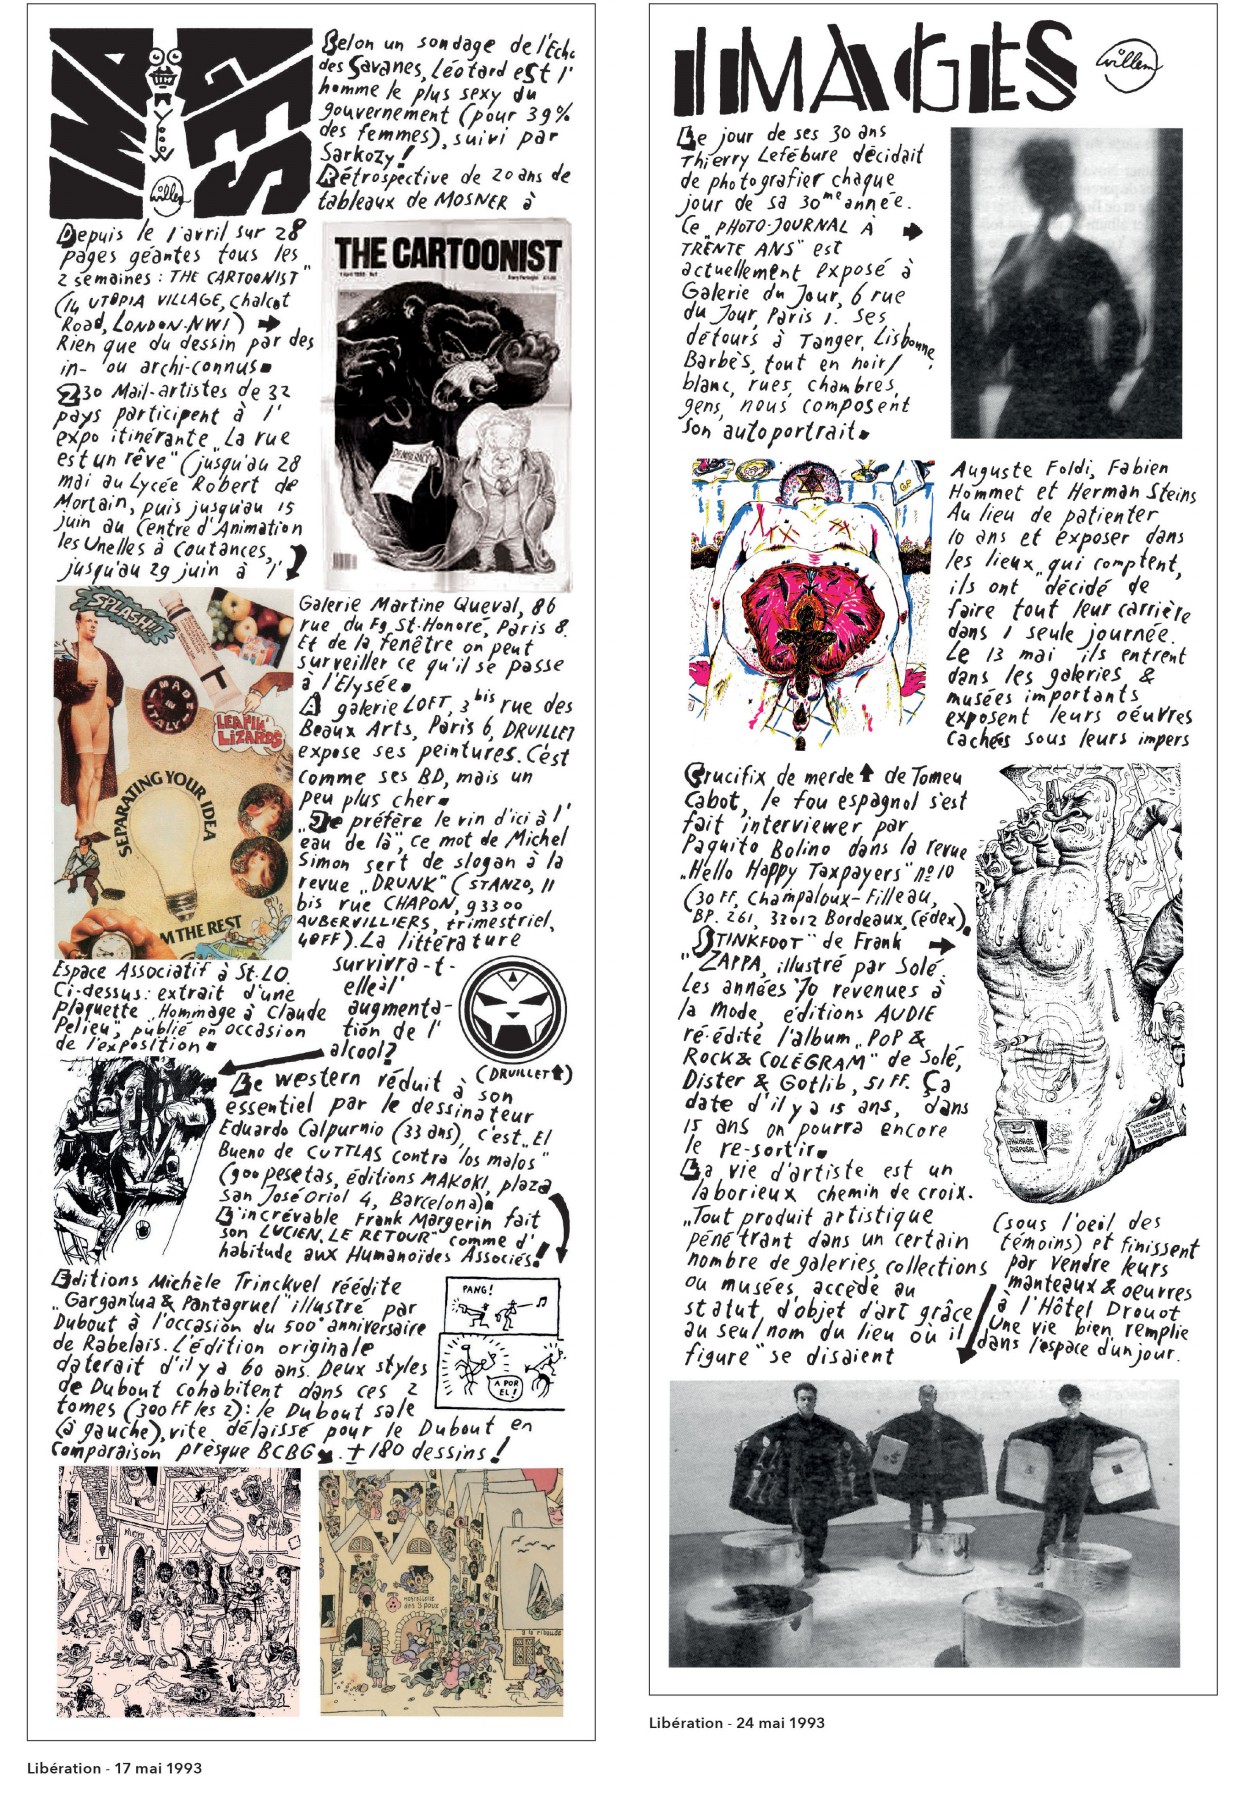 IMAGES
Willem
Selon un sondage de l'Echo
des Savanes, Léotard est l'
homme le plus sexy du
gouvernement (pour 39%
des femmes), suivi par
Sarkozy!
Rétrospective de 20 ans de
tableaux de MOSNER à
Depuis le 1 avril sur 28
pages géantes tous les
2 semaines: THE CARTOONIST"
(14 UTOPIA VILLAGE, Chalcot
Road, LONDON-NW1)
Rien que du dessin par des
in- ou archi-connus.
230 Mail-artistes de 32
pays participent à l'
expo itinérante „La rue
est un rêve" (jusqu'au 28
mai au Lycée Robert de
Mortain, puis jusqu'au 15
juin au Centre d'Animation
les Unelles à Coutances,
jusqu'au 29 juin à l'
THE CARTOONIST
DEMOCRACY
SPLASH!!
MADE IN ITALY
LEAPIN' LIZARDS
SEPARATING YOUR IDEA
M THE REST
Galerie Martine Queval, 86
rue du Fg St-Honoré, Paris 8.
Et de la fenêtre on peut
surveiller ce qu'il se passe
à l'Elysée.
A galerie LOFT, 3 bis rue des
Beaux Arts, Paris 6, DRUILLET
expose ses peintures. C'est
comme ses BD, mais un
peu plus cher.
„Je préfère le vin d'ici à l'
eau de là", ce mot de Michel
Simon sert de slogan à la
revue „DRUNK" (STANZO, 11
bis rue CHAPON, 93300
AUBERVILLIERS, trimestriel,
40FF). La littérature
survivra-t-
elle à l'
augmenta-
tion de l'
alcool?
(DRUILLET)
Espace Associatif à St. LO.
Ci-dessus: extrait d'une
plaquette „Hommage à Claude
Pelieu", publié en occasion
de l'exposition.
Le western réduit à son
essentiel par le dessinateur
Eduardo Calpurnio (33 ans), c'est „El
Bueno de CUTTLAS contra los malos"
(900 pesetas, éditions MAKOKI, plaza
San José Oriol 4, Barcelona).
L'increvable Frank Margerin fait
son „LUCIEN, LE RETOUR" comme d'
habitude aux Humanoïdes Associés!
Editions Michèle Trinckvel réédite
„Gargantua & Pantagruel" illustré par
Dubout à l'occasion du 500° anniversaire
de Rabelais. L'édition originale
daterait d'il y a 60 ans. Deux styles
de Dubout cohabitent dans ces 2
tomes (300 FF les 2): le Dubout sale
(à gauche), vite délaissé pour le Dubout en
comparaison presque BCBG. ±180 dessins!
PANG!
A POR EL!
Libération - 17 mai 1993
IMAGES
Willem
Le jour de ses 30 ans
Thierry Lefébure décidait
de photografier chaque
jour de sa 30me année.
Ce „PHOTO-JOURNAL À
TRENTE ANS" est
actuellement exposé à
Galerie du Jour, 6 rue
du Jour, Paris 1. Ses
détours à Tanger, Lisbonne,
Barbès, tout en noir/
blanc, rues, chambres,
gens, nous composent
son autoportrait.
Auguste Foldi, Fabien
Hommet et Herman Steins
Au lieu de patienter
10 ans et exposer dans
les lieux „qui comptent,
ils ont décidé de
faire tout leur carrière
dans 1 seule journée.
Le 13 mai ils entrent
dans les galeries &
musées importants
exposent leurs oeuvres
cachées sous leurs impers
Crucifix de merde de Tomeu
Cabot, le fou espagnol s'est
fait interviewer par
Paquito Bolino dans la revue
„Hello Happy Taxpayers" nº10
(30 FF, Champaloux-Filleau,
BP. 261, 33012 Bordeaux, Cédex).
„STINKFOOT" de Frank
ZAPPA, illustré par Solé.
Les années '70 revenues à
la mode, éditions AUDIE
ré-édite l'album „POP &
ROCK & COLEGRAM" de Solé,
Dister & Gotlib, 51 FF. Ça
date d'il y a 15 ans, dans
15 ans on pourra encore
le re-sortir.
La vie d'artiste est un
laborieux chemin de croix.
„Tout produit artistique
pénétrant dans un certain
nombre de galeries, collections
ou musées, accède au
statut d'objet d'art grâce
au seul nom du lieu où il
figure" se disaient
GARBAGE
DISPOSAL
(sous l'oeil des
témoins) et finissent
par vendre leurs
manteaux & oeuvres
à l'Hôtel Drouot
Une vie bien remplie
dans l'espace d'un jour.
Libération - 24 mai 1993